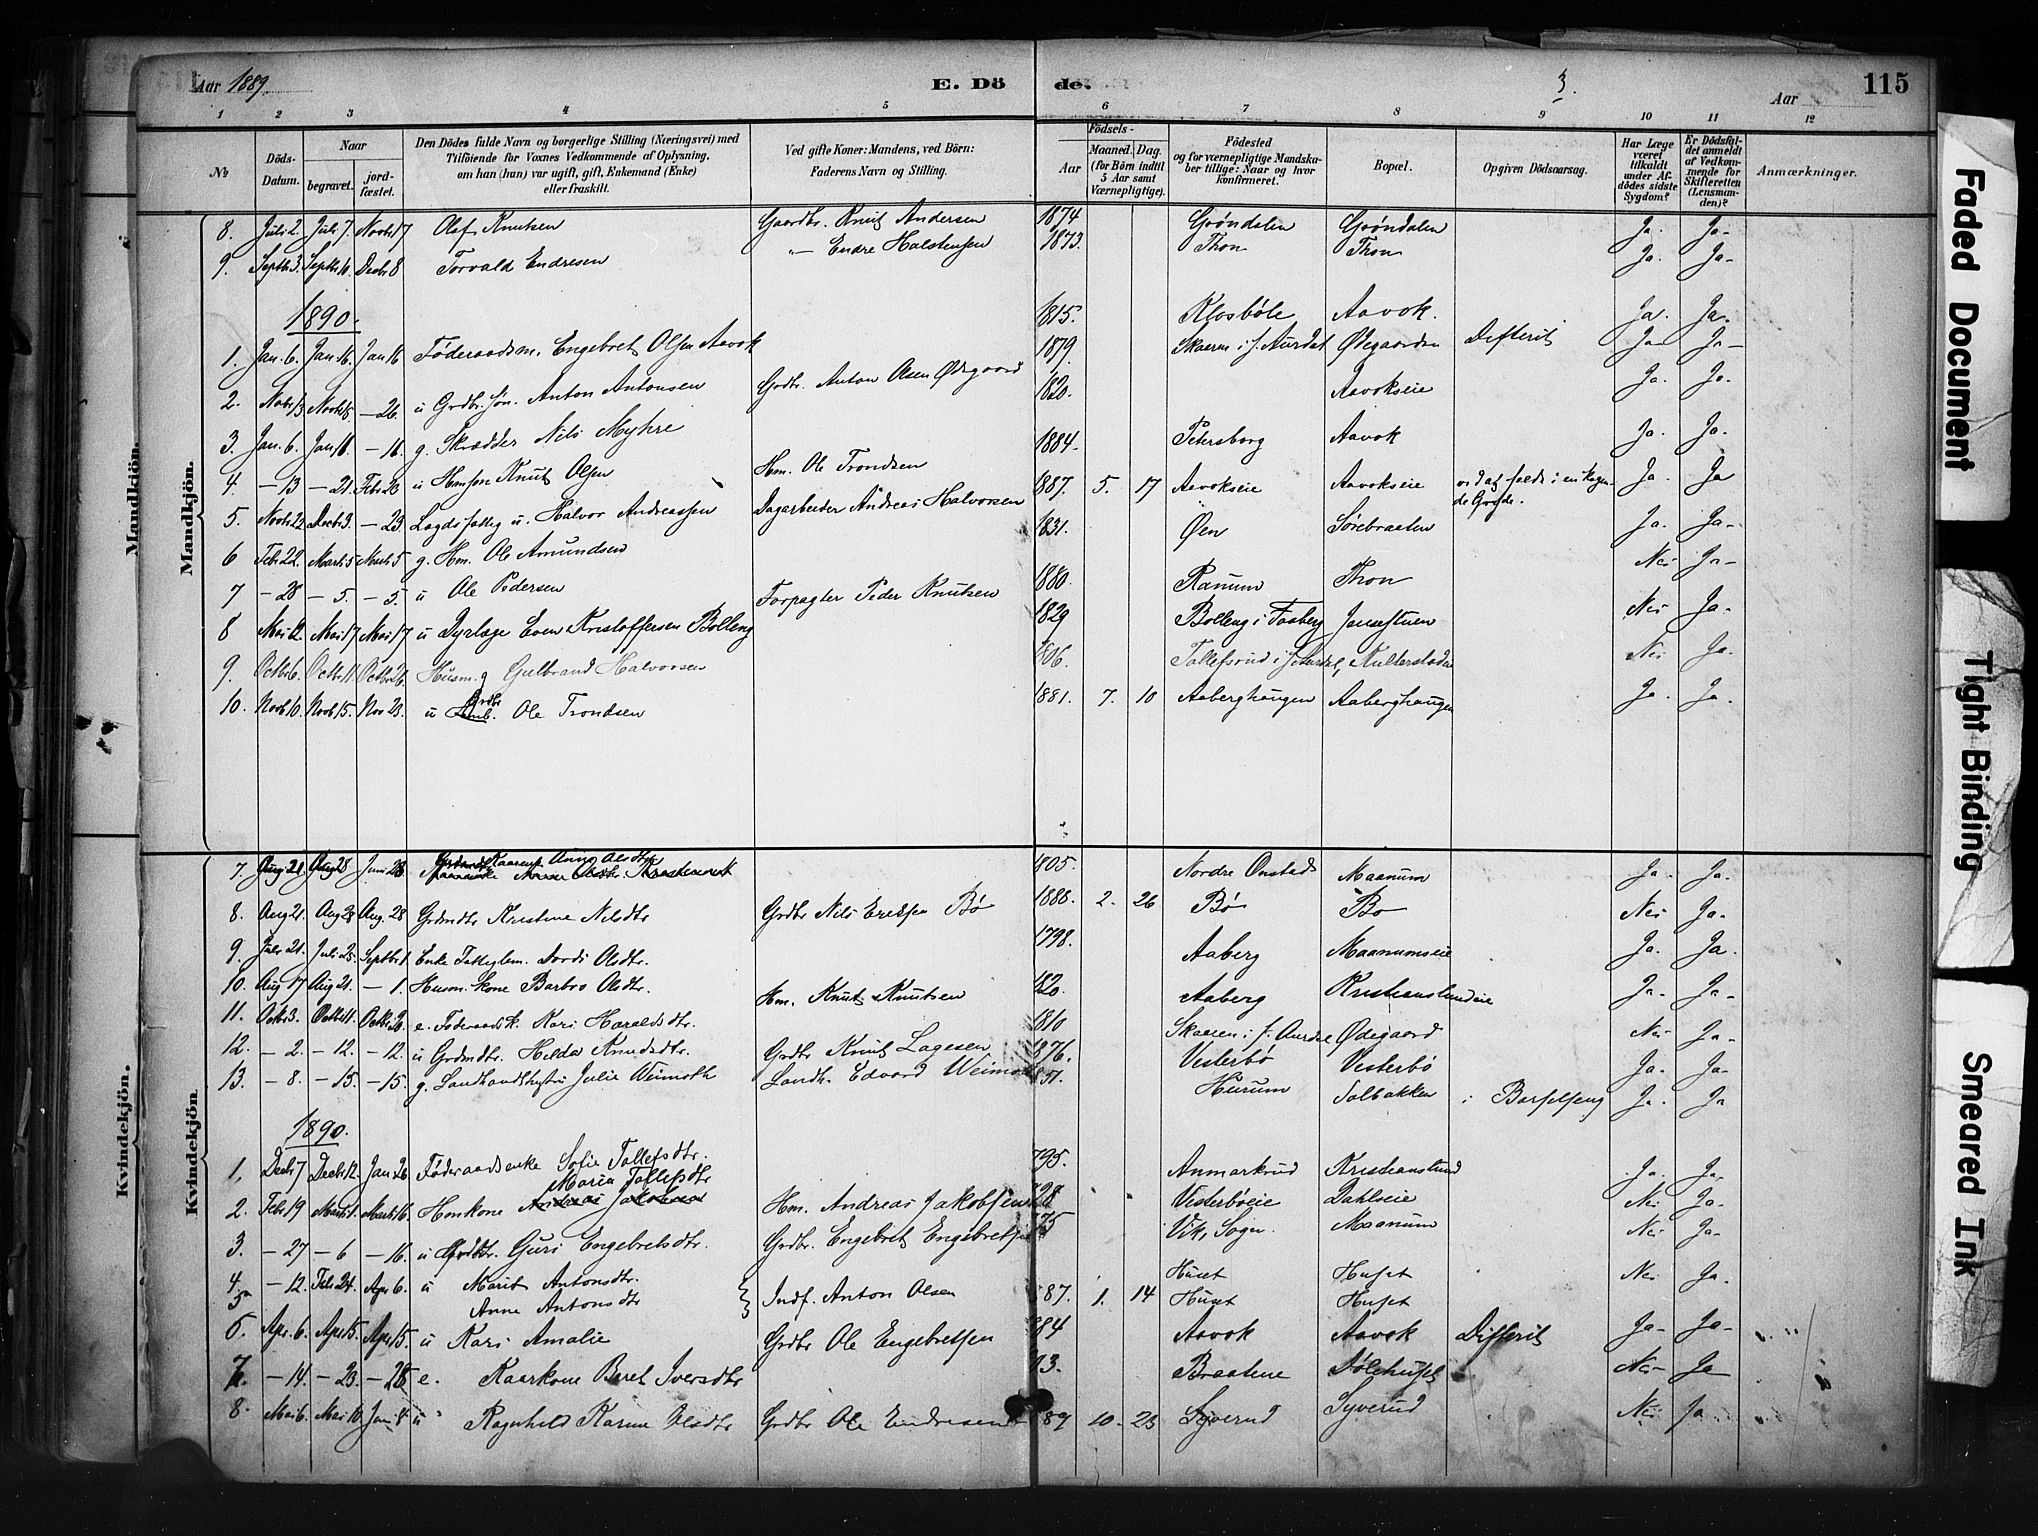 Aar 1889.
E. Dö de.
3.
Aar
115
1 2 3 4 5 6 7 8 9 10 11 12
№
Döds-Datum.
Naar
begravet.
jord-fæstet.
Den Dödes fulde Navn og borgerlige Stilling (Næringsvei) med
Tilföiende for Voxnes Vedkommende af Oplysning,
om han (hun) var ugift, gift, Enkemand (Enke)
eller fraskilt.
Ved gifte Koner: Mandens, ved Börn:
Faderens Navn og Stilling.
Födsels-
Aar
Maaned. Dag.
(for Börn indtil
5 Aar samt
Værnepligtige).
Födested
og for værnepligtige Mandska-
ber tillige: Naar og hvor
konfirmeret.
Bopæl.
Opgiven Dödsaarsag.
Har Læge
været
tilkaldt
under Af-
dödes sidste
Sygdom?
Er Dödsfal-
det anmeldt
af Vedkom-
mende for
Skifteretten
(Lensman-
den)?
Anmærkninger.
Mandkjön.
Mandkjön.
8. Juli 2. Juli 7. Novbr 17 Olaf Knutsen Gaardbr. Knut Andersen 1874 Grøndalen Grøndalen Ja. Ja-
9. Septbr 3. Septbr 10. Decbr 8 Torvald Endresen "— Endre Halstensen 1873. Thon Thon Ja. Ja-
1890.
1. Jan. 6. Jan 16. Jan 16 Føderaadsm. Engebret Olsen Aavok 1815. Klosbøle Aavok. Ja. Ja.
2. Novbr 13 Novbr 18. —26. u Grdbr. søn. Anton Antonsen Grdbr. Anton Olsen Ødegaard 1879. Skaren i S. Aurdal Ødegaarden Difterit Ja- Ja-
3. Jan. 6. Jan 16. —16. g. Skrædder Nils Myhre 1820. Aavokseie Ja. Ja.
4. —13 —21. Febr 23 u Hmsøn Knut Olsen Hm. Ole Trondsen 1884. Petersborg Aavok Ja. Ja.
5. Novbr 22 Decbr 3. —23. Lægdsfattig u. Halvor Andreassen Dagarbeider Andreas Halvorsen 1887. 5. 17 Aavokseie Aavokseie ved at falde i en kogen-
de Gryde. Ja. Ja
6 Febr 22. Marts 5 Marts 5 g. Hm. Ole Amundsen 1831. Øen Sørebraaten Ja. Ja-
7 —28 —5. —5. u Ole Pedersen Forpagter Peder Knutsen 1880. Ranum Thon Nei Ja-
8 Mai 12. Mai 17 Mai 17 u Dyrlæge Even Kristoffersen Bolleng 1829 Bolleng i Faaberg Jensestuen Nei Ja-
9. Octbr 6. Octbr 11. Octbr 26. Husm. g Gulbrand Halvorsen 1806. Tollefsrud i S. Aurdal Nei Ja.
10. Novb 10. Novb 15. Nov 23. u Grdbr Ole Trondsen 1881. 7. 10 Aaberghaugen Aaberghaugen Ja. Ja.
Kvindekjön.
Kvindekjön.
7. Aug 21 Aug 28 Juni 28 Kaarenke Anne Olsdtr 1805. Nordre Onstad Maanum Ja. Ja.
8. Aug 21. Aug 28 Aug. 28 Grdmdtr Kristine Nilsdtr Grdbr Nils Eriksen Bø 1888. 2. 26 Bø Bø Nei Ja.
9. Juli 21. Juli 25. Septbr 1. Enke Fattiglem. Jordi Olsdtr. 1798. Aaberg Maanumseie Ja. Ja.
10. Aug 17 Aug 21. —1. Husm. kone Barbro Olsdtr. Hm. Knut Knutsen 1820. Aaberg Kristianslundeie Ja- Ja-
11. Octbr 3. Octbr 11. Octbr 20. e. Føderaadsk. Kari Haraldsdtr. 1810 Skaren i S. Aurdal Ødegaard Nei Ja-
12. —2. —12. —12. u Grdmdtr. Hilda Knudsdtr. Grdbr Knut Lagesen 1876. Vesterbø Vesterbø Ja. Ja-
13. —8. —15. —15. g. Landhandl.hustru Julie Weimoth Landh. Edvard Weimoth 1851. Hurum Solbakken i Barselseng Ja. Ja
1890.
1. Decb 7 Decb 12. Jan 26 Føderaadsenke Sofie Tollefsdtr. 795. Anmarkrud Kristianslund Ja. Ja.
2. Febr 19 Marts 1. Marts 16. Hmkone Maria Tollefsdtr Hm. Andreas Jakobsen 1828 Vesterbøeie Dahlseie Nei Ja-
3. —27 —6 —16. u Grdbdtr. Guri Engebretsdtr. Grdbr. Engebret Engebretsen 75 Vik, Sogn. Maanum Nei Ja-
4 —12. Febr 24. Apr 6. u Marit Antonsdtr. Indf. Anton Olsen 87. 1. 14 Huset Huset Nei Ja.
5 Anne Antonsdtr Huset Huset
6. Apr. 6. Apr 15. Apr 15. u Kari Amalie Grdbr Ole Engebretsen 884 Aavok Aavok Difterit Ja- Ja-
7. —14. —23. —28 e. Kaarkone Beret Iversdtr 13. Braatene Nei- Ja
8. Mai 6. Mai 10. Juni 8 u Ragnhild Karine Olsdtr Grdbr Ole Endresen 89 10. 23 Syverud Syverud Nei Ja
Faded Document
Tight Binding
Smeared Ink